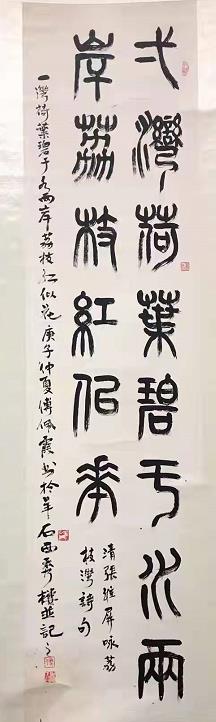 弌灣荷葉碧于水兩
岸荔枝紅佀華
清張維屏咏荔
枝灣詩句
一灣荷葉碧于水兩岸荔枝紅似花庚子仲夏傅佩霞书於羊石西樓並記之